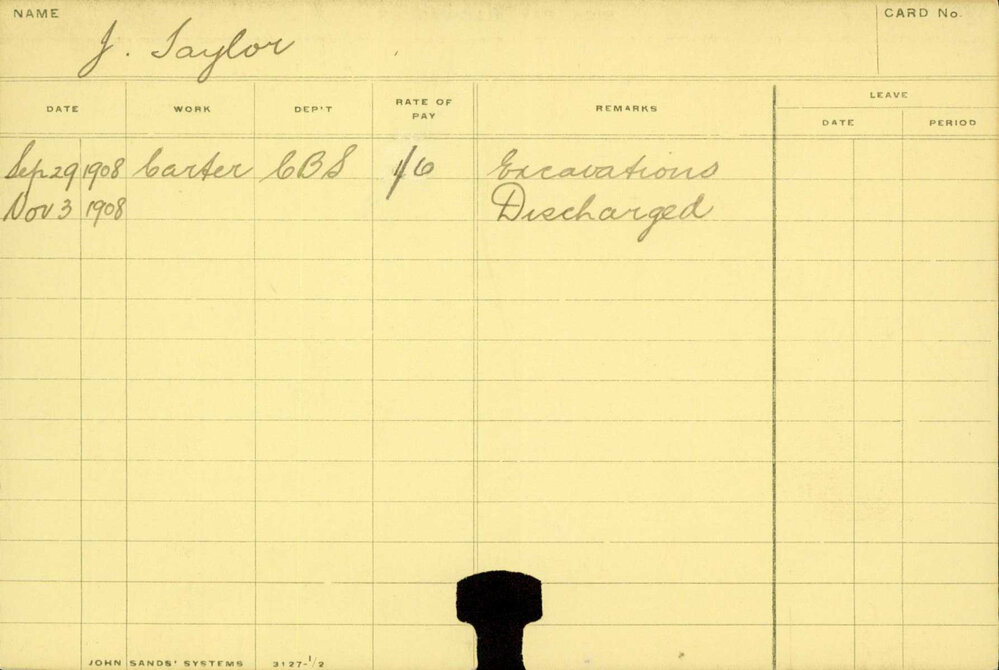 NAME
CARD No.
J. Taylor
DATE WORK DEP'T RATE OF PAY REMARKS LEAVE
DATE PERIOD
Sep 29 1908 Carter CBS 1/6 Excavations
Nov 3 1908 Discharged
JOHN SANDS' SYSTEMS 3127-1/2